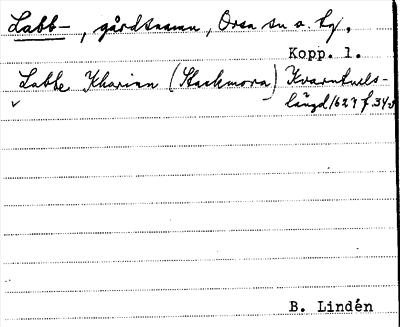 Labb-, gårdsnamn, Orsa sn o. tg.
Kopp. l.
Labbe Kharinn (Stackmora) Kvarntuls-
längd 1627 f. 34v
B. Lindén